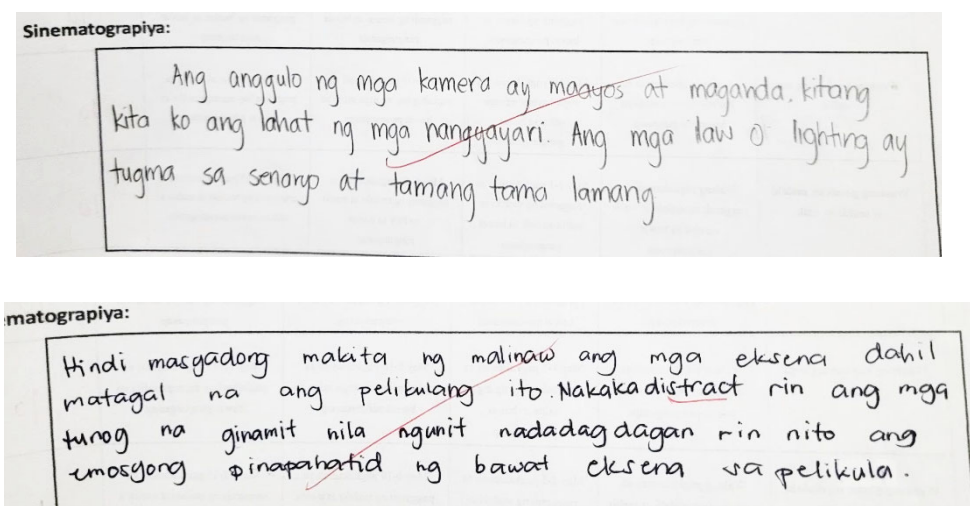 Sinematograpiya:
Ang anggulo ng mga kamera ay maayos at maganda. kitang
kita ko ang lahat ng mga nangyayari. Ang mga ilaw o lighting ay
tugma sa senaryo at tamang tama lamang
ematograpiya:
Hindi masyadong makita ng malinaw ang mga eksena dahil
matagal na ang pelikulang ito. Nakakadistract rin ang mga
tunog na ginamit nila ngunit nadadagdagan rin nito ang
emosyong pinapahatid ng bawat eksena sa pelikula.